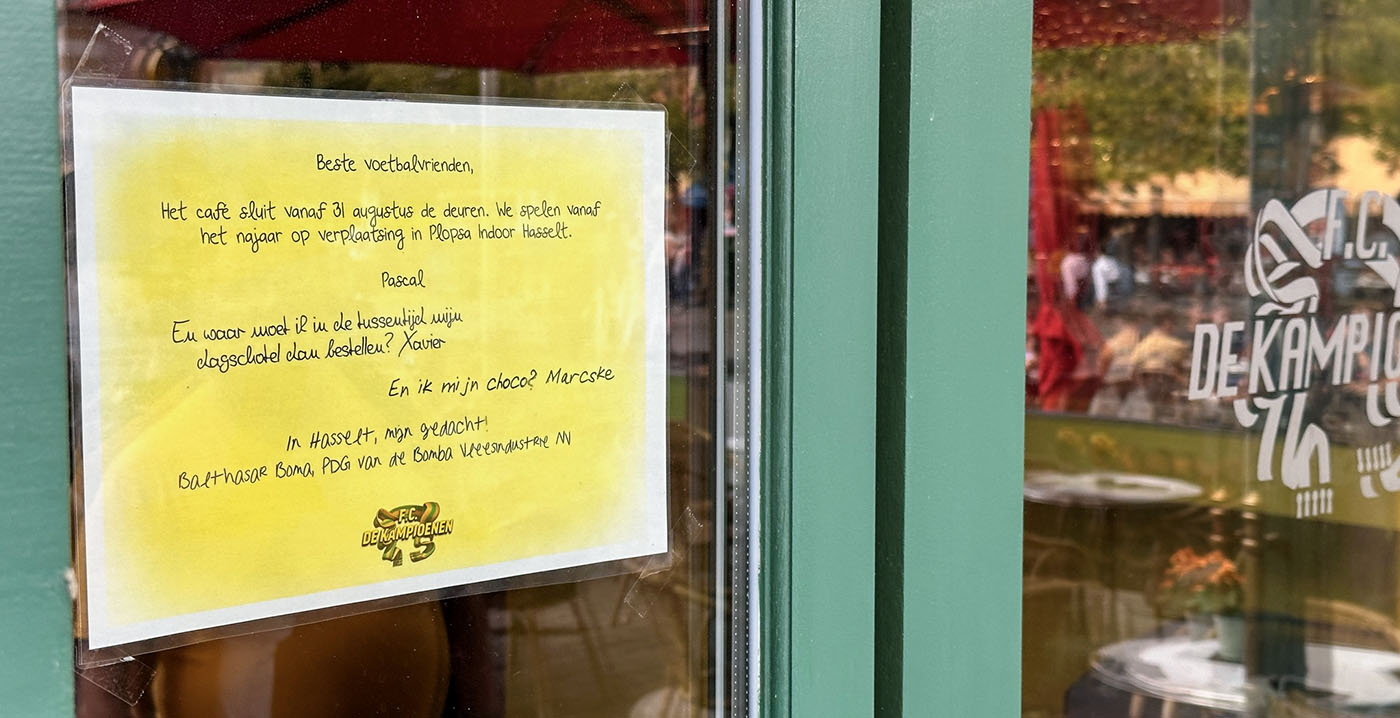 Beste voetbalvrienden,
Het café sluit vanaf 31 augustus de deuren. We spelen vanaf
het najaar op verplaatsing in Plopsa Indoor Hasselt.
Pascal
En waar moet ik in de tussentijd mijn
dagschotel dan bestellen? Xavier
En ik mijn choco? Marcske
In Hasselt, mijn gedacht!
Balthasar Boma, PDG van de Bomba Vleesindustrie NV
F.C.
DE KAMPIOENEN
F.C.
DE KAMPIO